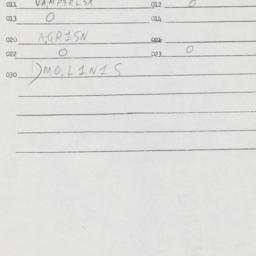 011 VAMPSRLSX 012 0
013 0 014
020 A,GR1SN 021
022 0 023 0
030 )MO,L1N1S